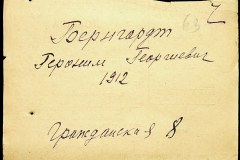 63
Ч
Бернгардт
Героним Георгиевич
1912
Гражданская 8